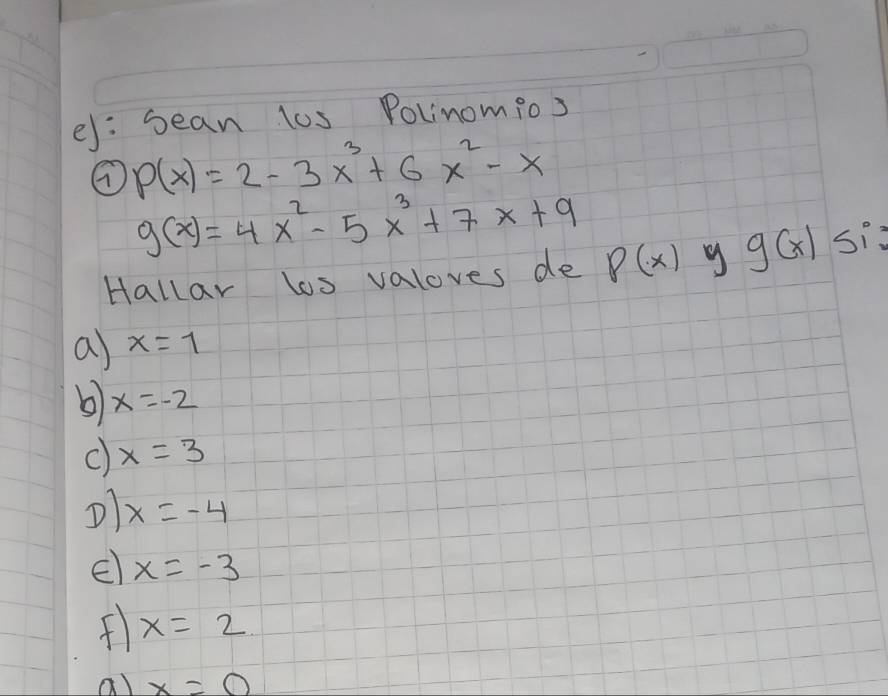 ej: Sean los Polinomios
① P(x) = 2 - 3x³ + 6x² - x
g(x) = 4x² - 5x³ + 7x + 9
Hallar los valores de P(x) y g(x) si:
a) x = 1
b) x = -2
c) x = 3
D) x = -4
E) x = -3
f) x = 2
g) x = 0